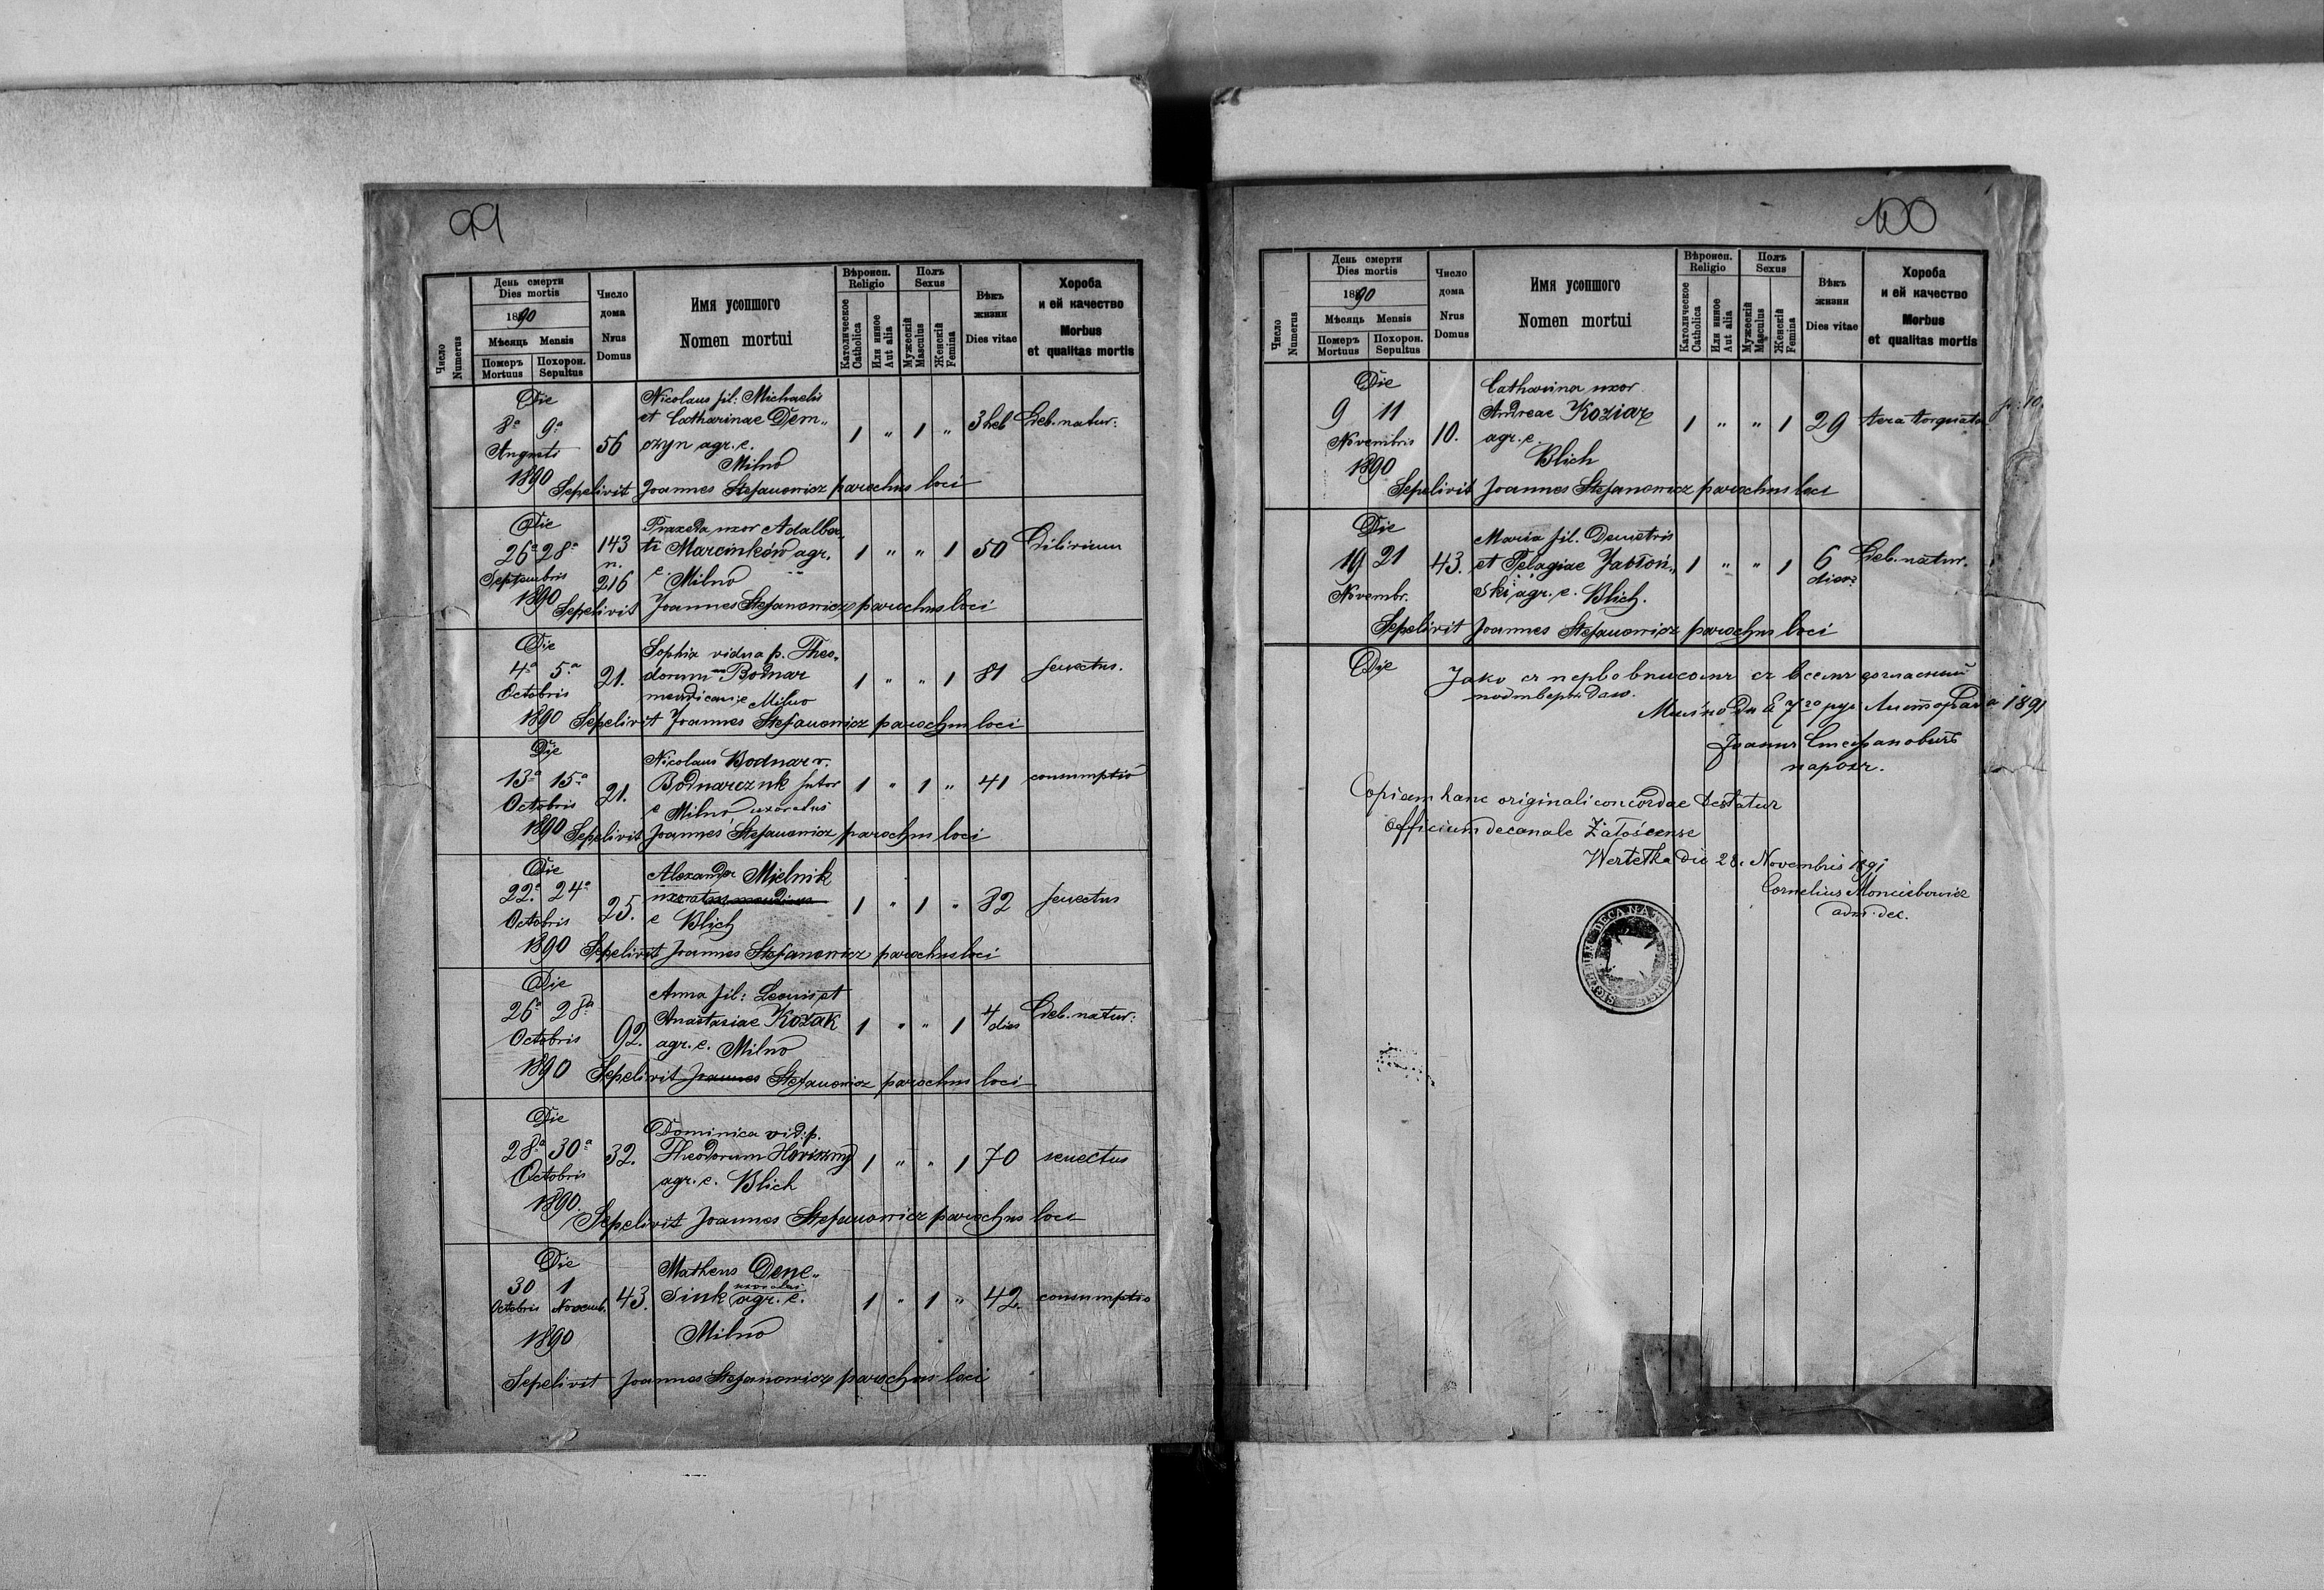 99
Число
Numerus
День смерти
Dies mortis
1890
Мѣсяць Mensis
Померъ Похорон.
Mortuus Sepultus
Число
дома
Nrus
Domus
Имя усопшого
Nomen mortui
Вѣроисп.
Religio
Католическое
Catholica
Или инное
Aut alia
Полъ
Sexus
Мужескій
Masculus
Женскій
Femina
Вѣкъ
жизни
Dies vitae
Хороба
и ей качество
Morbus
et qualitas mortis
Die
8ª 9ª
Augusti
1890
56
Nicolaus fil: Michaelis
et Catharinae Dem„
czyn agr. e.
Milno
1 „ 1 „ 3 heb Deb. natur:
Sepelivit Joannes Stefanowicz parochus loci
Die
26ª 28ª
Septembris
1890
143
n.
216
Praxeda uxor Adalber„
ti Marcinków agr.
e. Milno
1 „ „ 1 50 Dilirium
Sepelivit Joannes Stefanowicz parochus loci
Die
4ª 5ª
Octobris
1890
21.
Sophia vidua p. Theo„
dorum Bodnar
mendicans e Milno
1 „ „ 1 81 senectus.
Sepelivit Joannes Stefanowicz parochus loci
Die
13ª 15ª
Octobris
1890
21.
Nicolaus Bodnar v.
Bodnarczuk sutor
e Milno uxoratus
1 „ 1 „ 41 consumptio
Sepelivit Joannes Stefanowicz parochus loci
Die
22ª 24ª
Octobris
1890
25.
Alexander Mielnik
uxoratus
e Blich
1 „ 1 „ 82 senectus
Sepelivit Joannes Stefanowicz parochus loci
Die
26ª 28ª
Octobris
1890
92.
Anna fil: Leonis et
Anastasiae Kozak
agr. e. Milno
1 „ „ 1 4 dies Deb. natur:
Sepelivit Joannes Stefanowicz parochus loci
Die
28ª 30ª
Octobris
1890.
32.
Dominica vid: p.
Theodorum
agr. e. Blich
1 „ „ 1 70 senectus
Sepelivit Joannes Stefanowicz parochus loci
Die
30 1
Octobris Novemb.
1890
43.
Matheus Dene„
siuk uxoratus
agr. e.
Milno
1 „ 1 „ 42. consumptio
Sepelivit Joannes Stefanowicz parochus loci
100
Число
Numerus
День смерти
Dies mortis
1890
Мѣсяць Mensis
Померъ Похорон.
Mortuus Sepultus
Число
дома
Nrus
Domus
Имя усопшого
Nomen mortui
Вѣроисп.
Religio
Католическое
Catholica
Или инное
Aut alia
Полъ
Sexus
Мужескій
Masculus
Женскій
Femina
Вѣкъ
жизни
Dies vitae
Хороба
и ей качество
Morbus
et qualitas mortis
Die
9 11
Novembris
1890
10.
Catharina uxor
Andreae Koziar
agr. e.
Blich
1 „ „ 1 29
Sepelivit Joannes Stefanowicz parochus loci
Die
19 21
Novembr.
43.
Maria fil. Demetris
et Pelagiae Jabłoń„
ski agr. e. Blich.
1 „ „ 1 6 dier. Deb. natur.
Sepelivit Joannes Stefanowicz parochus loci
Die
Яко съ первобписомъ съ всемъ согласный
подтверждаю.
Мильно дня Листопада 1891
Іоаннъ Стефановичъ
парохъ.
Copiam hanc originali concordae testatur
Officium decanale Załoścense
Wertełka die 28. Novembris 1891
Cornelius
adm. dec.